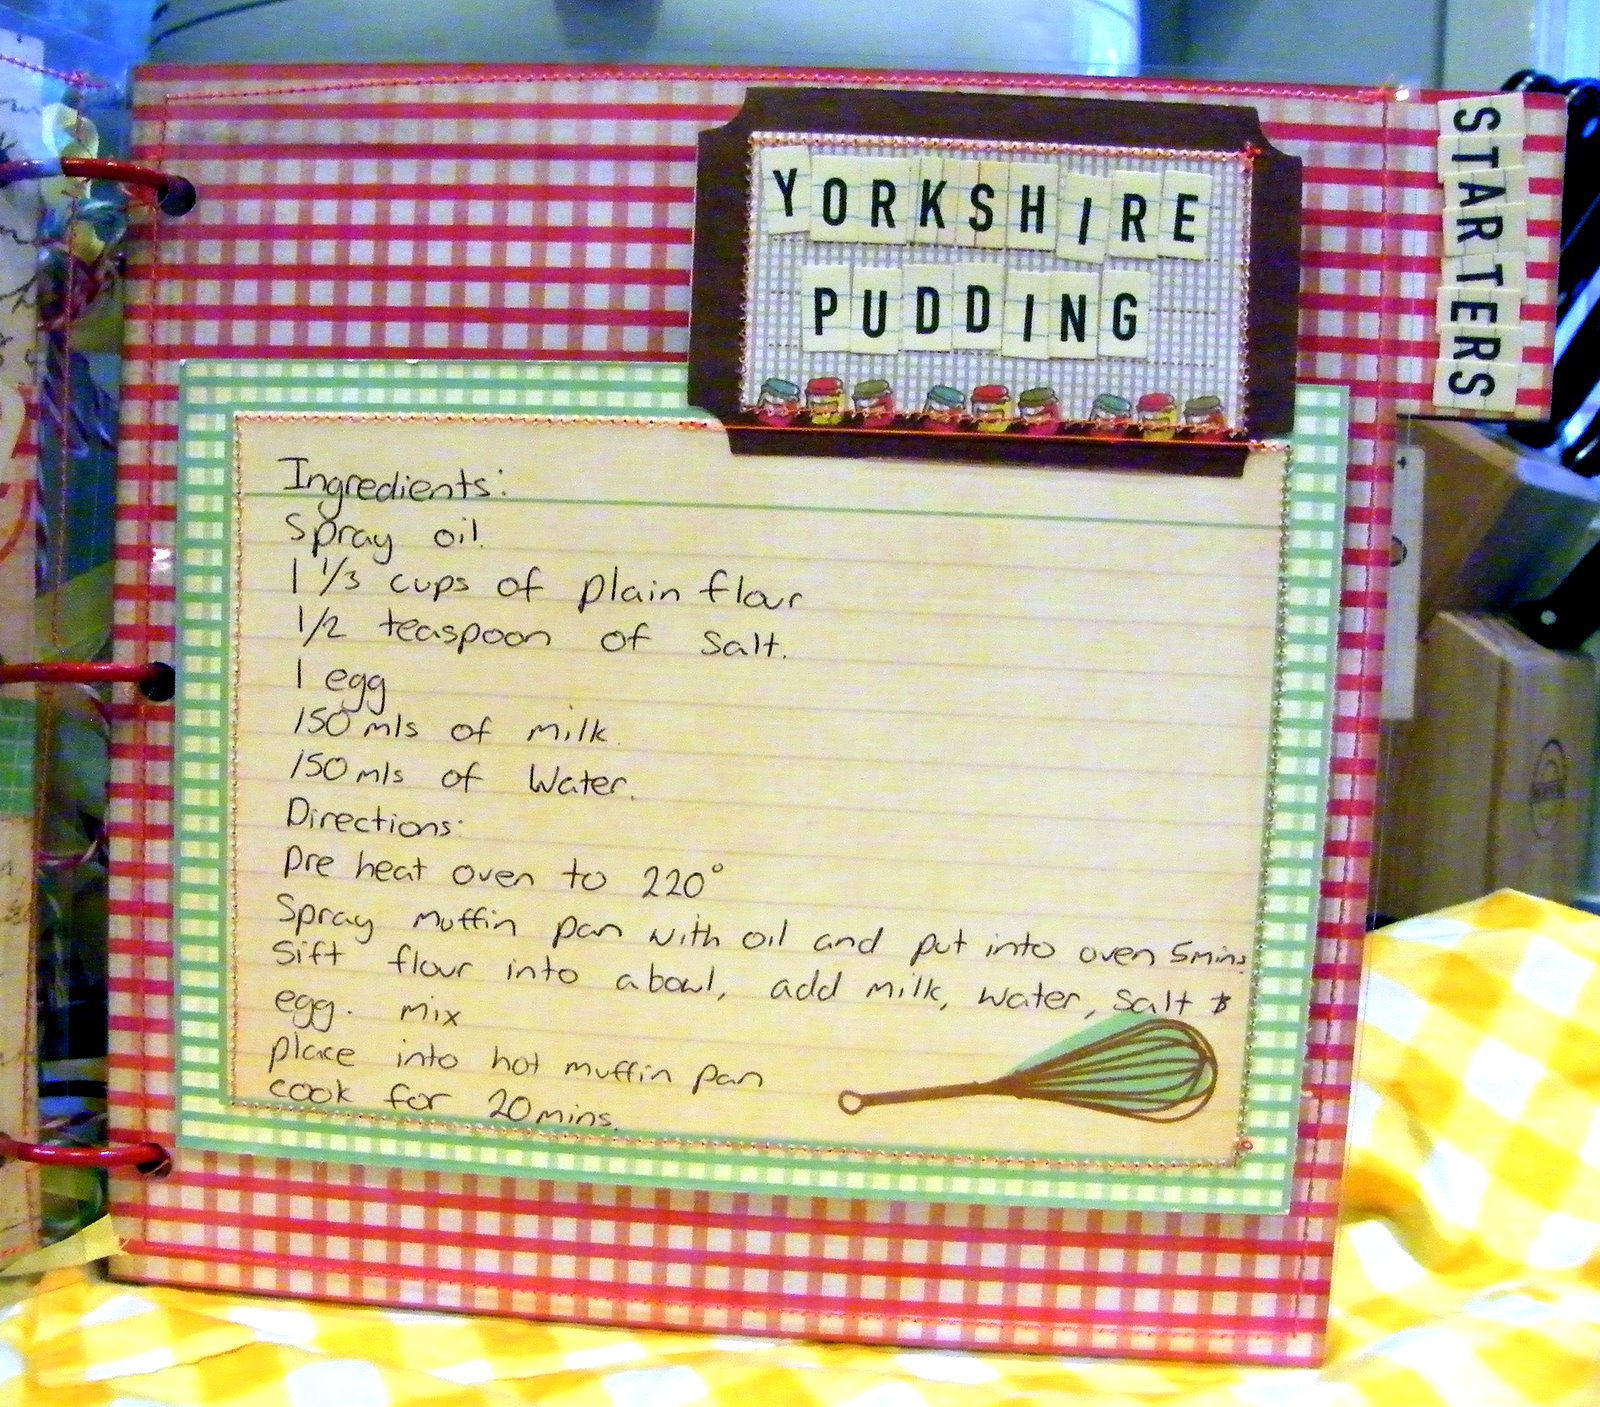 YORKSHIRE
PUDDING
STARTERS
Ingredients:
Spray oil.
1 1/3 cups of plain flour
1/2 teaspoon of salt.
1 egg
150 mls of milk.
150 mls of Water.
Directions:
Pre heat oven to 220°
Spray muffin pan with oil and put into oven 5mins.
Sift flour into a bowl, add milk, water, salt &
egg. mix
place into hot muffin pan
cook for 20 mins.